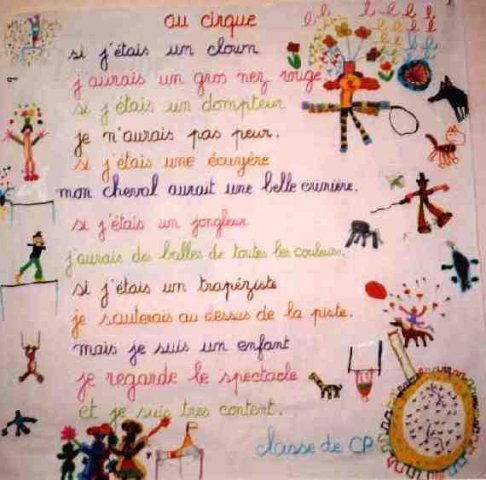 au cirque
si j'étais un clown
j'aurais un gros nez rouge
si j'étais un dompteur
je n'aurais pas peur.
si j'étais une écuyère
mon cheval aurait une belle crinière.
si j'étais un jongleur
j'aurais des balles de toutes les couleurs.
si j'étais un trapéziste
je sauterais au dessus de la piste.
mais je suis un enfant
je regarde le spectacle
et je suis très content.
classe de CP